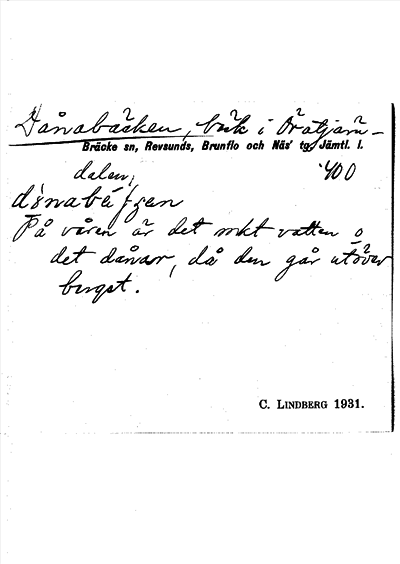 Dånabäcken, bäck i Öratjärn-
Bräcke sn, Revsunds, Brunflo och Näs' tg, Jämtl. l.
dalen, 400
På våren är det mkt vatten o
det dånar, då den går utöver
berget.
C. LINDBERG 1931.